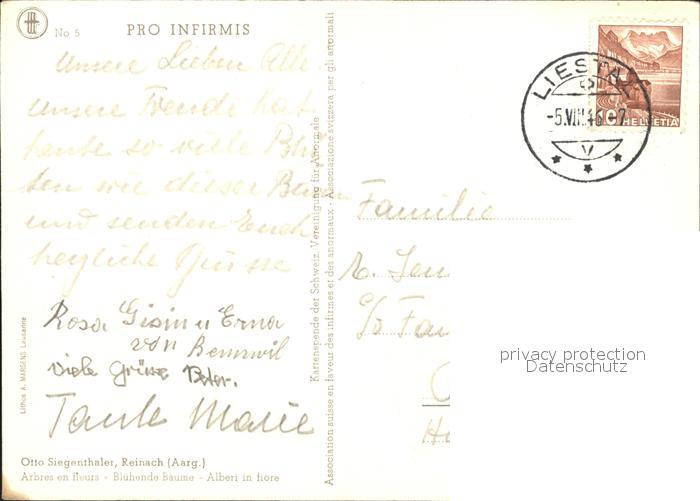 No 5 PRO INFIRMIS
Unsere Lieben Alle.
Unsere Freude hat
heute so viele Blü
ten wie dieser Baum
und senden Euch
herzliche Grüsse
Rosa Gisin u Erna
von Bennwil
viele Grüsse Peter.
Tante Marie
Otto Siegenthaler, Reinach (Aarg.)
Arbres en fleurs - Blühende Bäume - Alberi in fiore
Lithos A. MARSENS Lausanne
Kartenspende der Schweiz. Vereinigung für Anormale
Association suisse en faveur des infirmes et des anormaux - Associazione svizzera per gli anormali
LIESTAL
-5.VIII.46
10 HELVETIA
Familie
c/o Fa
privacy protection
Datenschutz